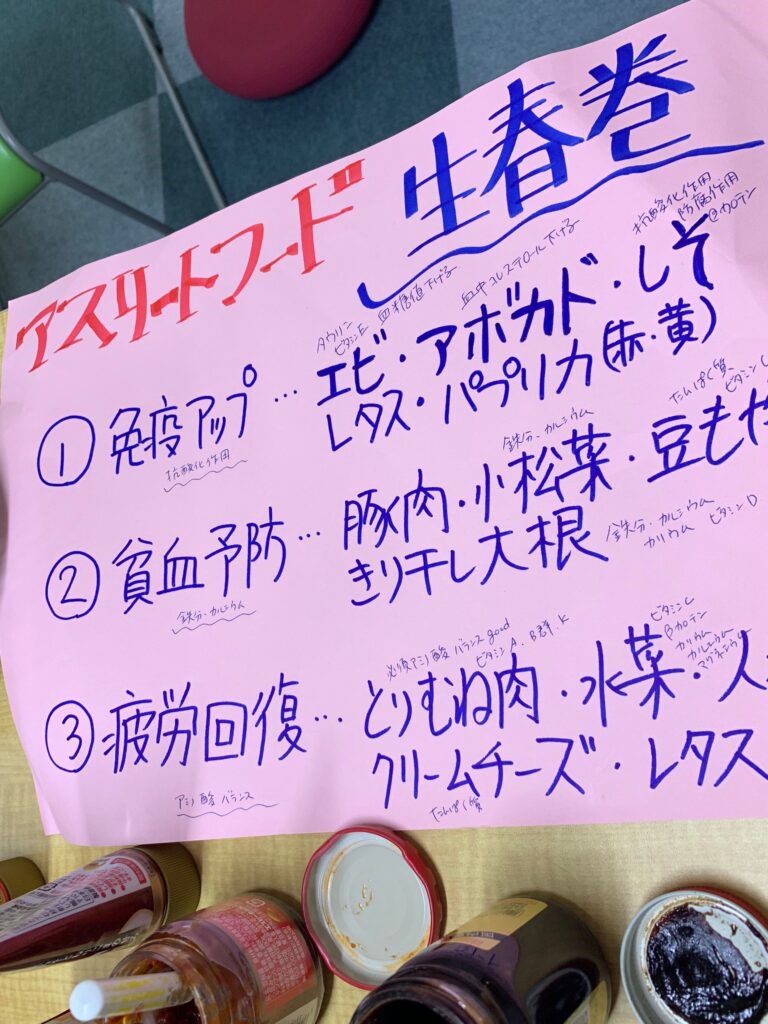 アスリートフード 生春巻
抗酸化作用
防腐作用
βカロテン
タウリン
ビタミンE
血糖値下げる
血中コレステロール下げる
① 免疫アップ… エビ・アボカド・しそ
レタス・パプリカ(赤・黄)
抗酸化作用
鉄分・カルシウム
たんぱく質、
ビタミンC
② 貧血予防… 豚肉・小松菜・豆もや
きり干し大根
鉄分・カルシウム
カリウム ビタミンD
鉄分・カルシウム
必須アミノ酸 バランス good
ビタミンA、B群、K
ビタミンC
βカロテン
カリウム
カルシウム
マグネシウム
③ 疲労回復… とりむね肉・水菜・人
クリームチーズ・レタス
たんぱく質
アミノ酸 バランス